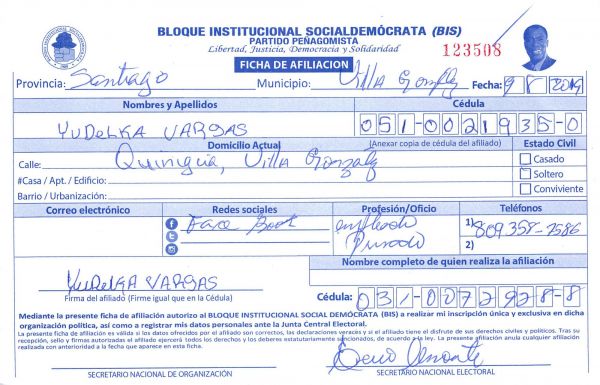 BLOQUE INSTITUCIONAL SOCIALDEMÓCRATA (BIS)
PARTIDO PEÑAGOMISTA
Libertad, Justicia, Democracia y Solidaridad
123508
FICHA DE AFILIACION
Provincia: Santiago Municipio: Villa Gonzlez Fecha: 9 8 2019
Nombres y Apellidos Cédula
YUDELKA VARGAS 051-0021935-0
Domicilio Actual (Anexar copia de cédula del afiliado) Estado Civil
Calle: Quinigua, Villa Gonzalz Casado
#Casa / Apt. / Edificio: Soltero
Barrio / Urbanización: Conviviente
Correo electrónico Redes sociales Profesión/Oficio Teléfonos
Face Book empleado 1) 809 358-2586
Privado 2)
Nombre completo de quien realiza la afiliación
YUDELKA VARGAS
Firma del afiliado (Firme igual que en la Cédula) Cédula: 031-0072928-8
Mediante la presente ficha de afiliación autorizo al BLOQUE INSTITUCIONAL SOCIAL DEMÓCRATA (BIS) a realizar mi inscripción única y exclusiva en dicha
organización política, así como a registrar mis datos personales ante la Junta Central Electoral.
La presente ficha de afiliación es válida si los datos ofrecidos por el afiliado son correctos, las declaraciones veraces y si el afiliado tiene el disfrute de sus derechos civiles y políticos. Tras su
recepción, sello y firmas autorizadas el afiliado ejercerá todos los derechos y los deberes estatutariamente sancionados, de acuerdo a la ley. La presente afiliación anula cualquier afiliación
realizada con anterioridad a la fecha que aparece en esta ficha.
SECRETARIO NACIONAL DE ORGANIZACIÓN SECRETARIO NACIONAL ELECTORAL